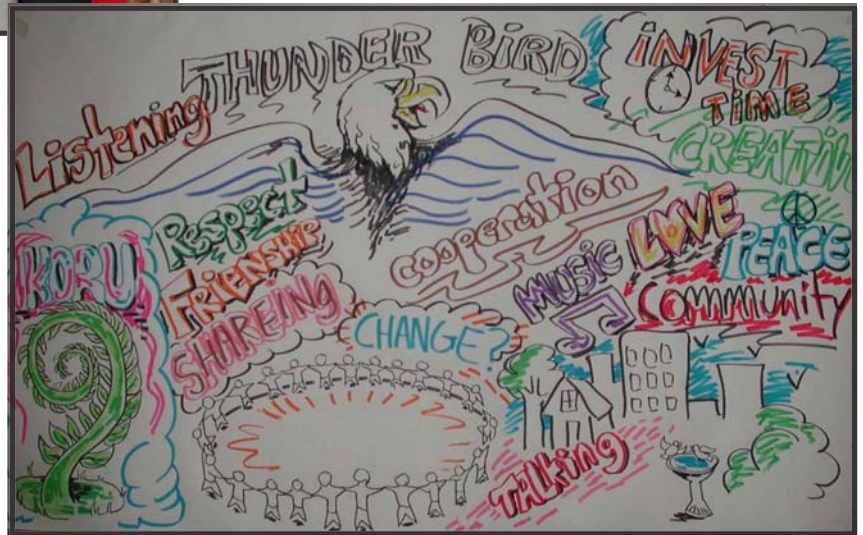 THUNDER BIRD
INVEST
TIME
Listening
CREATIN
Respect
COOPERATION
LOVE
PEACE
KORU
FRIENSHIP
MUSIC
Commmunity
SHAREING
CHANGE?
TALKing